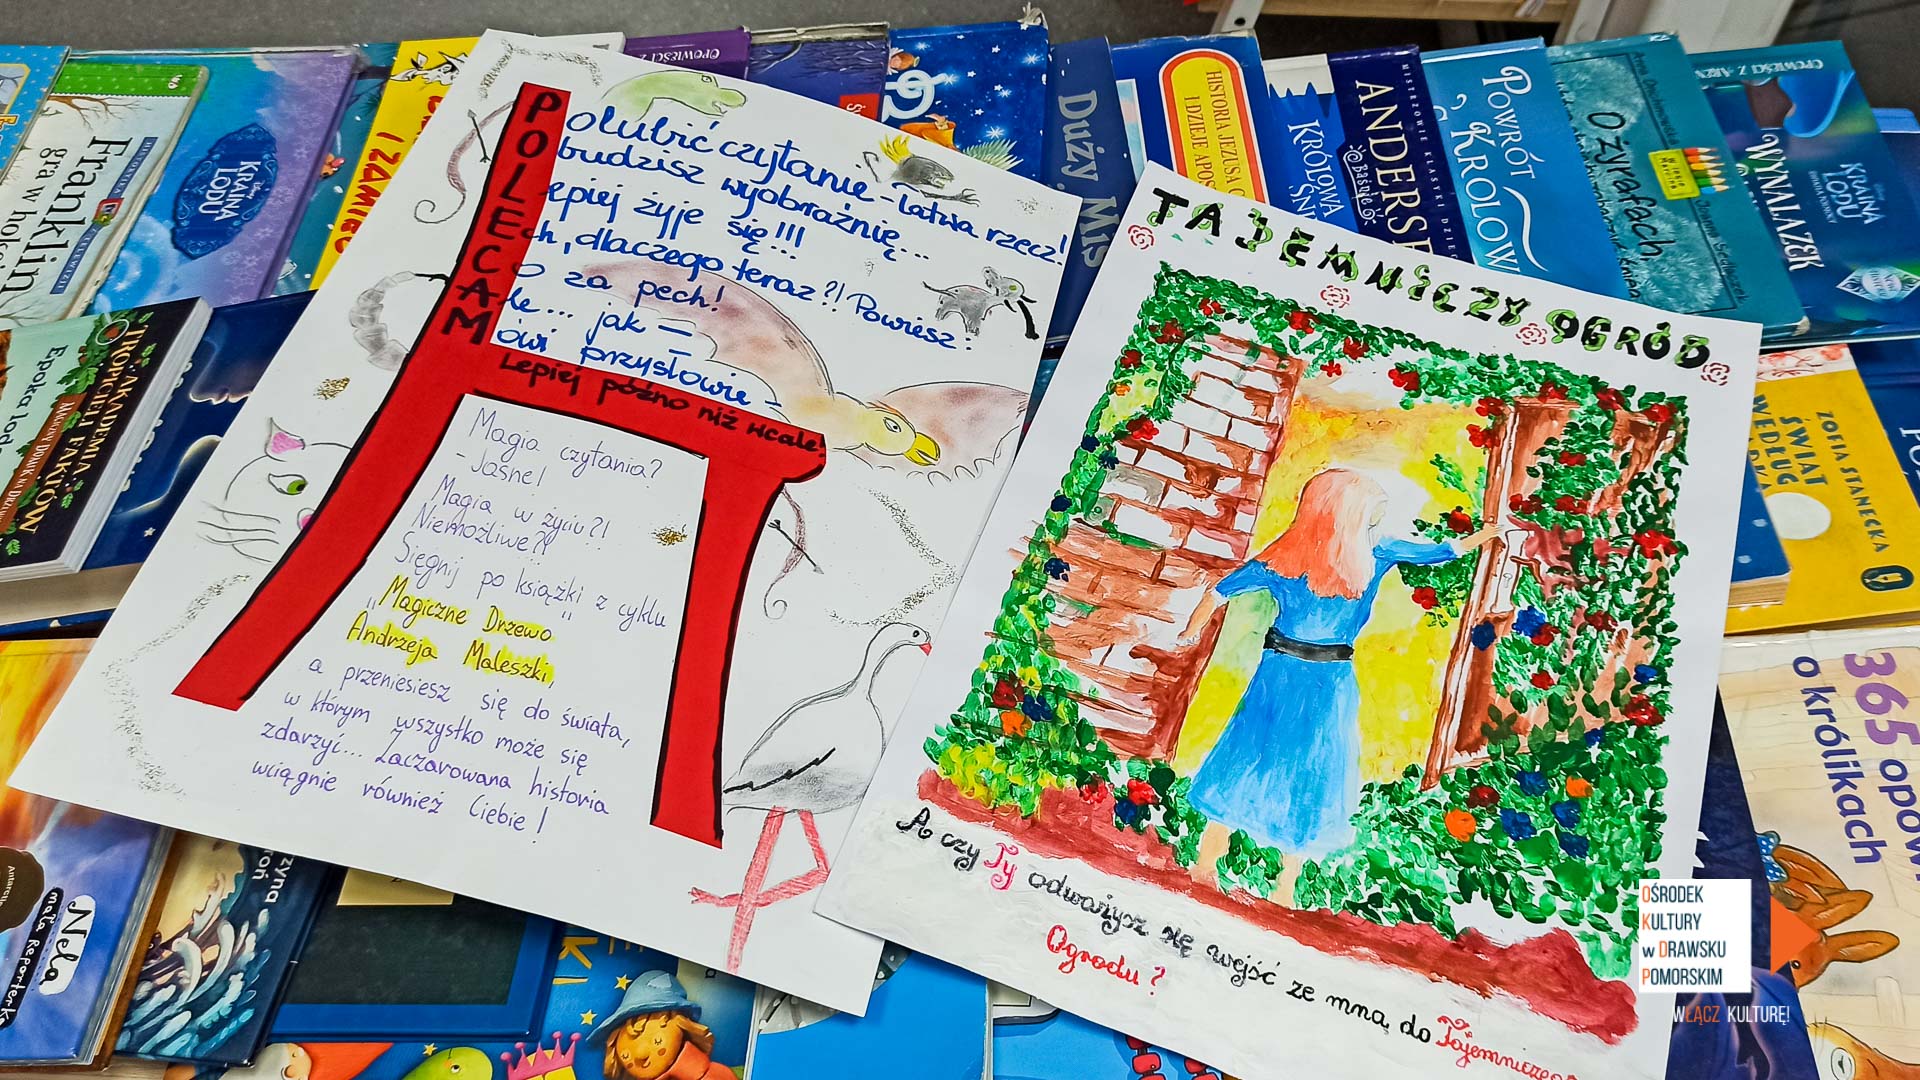 POLECAM
Polubić czytanie - łatwa rzecz!
Obudzisz wyobraźnię...
Lepiej żyje się!!!
Ech, dlaczego teraz?! Powiesz:
Co za pech!
Ale... jak —
Mówi przysłowie -
Lepiej późno niż wcale!
Magia czytania?
- Jasne!
Magia w życiu?!
Niemożliwe?!
Sięgnij po książki z cyklu
„Magiczne Drzewo"
Andrzeja Maleszki,
a przeniesiesz się do świata,
w którym wszystko może się
zdarzyć... Zaczarowana historia
wciągnie również Ciebie!
TAJEMNICZY OGRÓD
A czy Ty odważysz się wejść ze mną do Tajemniczego
Ogrodu?
Franklin
gra w hokeja
KRAINA
LODU
I ZAMIEĆ
OPOWIEŚCI Z
Duży Miś
HISTORIA JEZUSA
I DZIEJE APOS
KRÓLOWA
ŚNI
ANDERSE
Baśnie
MISTRZOWIE KLASYKI DZIE
POWRÓT
KRÓLOW
O żyrafach,
OPOWIEŚCI Z
WYNALAZEK
KRAINA
LODU
AKADEMIA
TROPICIELI FAKTÓW
Epoka lod
ZOFIA STANECKA
ŚWIAT
WEDŁUG
365 opow
o królikach
Nela
mała reporterka
OŚRODEK
KULTURY
w DRAWSKU
POMORSKIM
WŁĄCZ KULTURĘ!